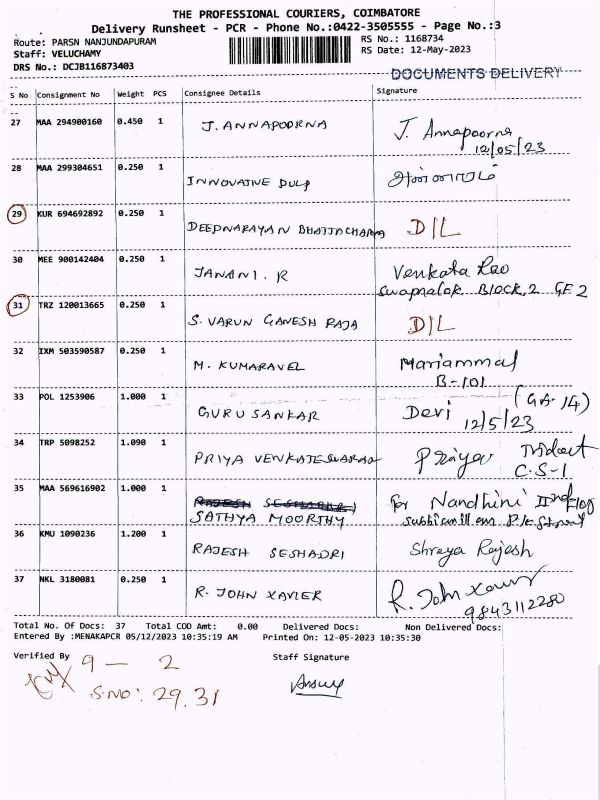 THE PROFESSIONAL COURIERS, COIMBATORE
Delivery Runsheet - PCR - Phone No.:0422-3505555 - Page No.:3
Route: PARSN NANJUNDAPURAM
RS No.: 1168734
Staff: VELUCHAMY
RS Date: 12-May-2023
DRS No.: DCJB116873403
DOCUMENTS DELIVERY
S No Consignment No Weight PCS Consignee Details Signature
27 MAA 294900160 0.450 1 J. ANNAPOORNA J. Annapoorna
12/05/23
28 MAA 299304651 0.250 1 INNOVATIVE
29 KUR 694692892 0.250 1 DEEPNARAYAN BHATTACHARYA D/L
30 MEE 900142404 0.250 1 JANANI. R Venkata Rao
Swapnalok Block, 2 GF 2
31 TRZ 120013665 0.250 1 S. VARUN GANESH RAJA D/L
32 IXM 503590587 0.250 1 M. KUMARAVEL Mariammal
B-101
33 POL 1253906 1.000 1 GURU SANKAR Devi (GA-14)
12/5/23
34 TRP 5098252 1.090 1 PRIYA VENKATESWARAO Priya Trident
C.S-1
35 MAA 569616902 1.000 1 RAJESH SESHADRI for Nandhini IInd
SATHYA MOORTHY
36 KMU 1090236 1.200 1 RAJESH SESHADRI Shreya Rajesh
37 NKL 3180081 0.250 1 R. JOHN XAVIER R. John Xavier
9843112280
Total No. Of Docs: 37 Total COD Amt: 0.00 Delivered Docs: Non Delivered Docs:
Entered By :MENAKAPCR 05/12/2023 10:35:19 AM Printed On: 12-05-2023 10:35:30
Verified By 9 - 2 Staff Signature
S.No: 29.31